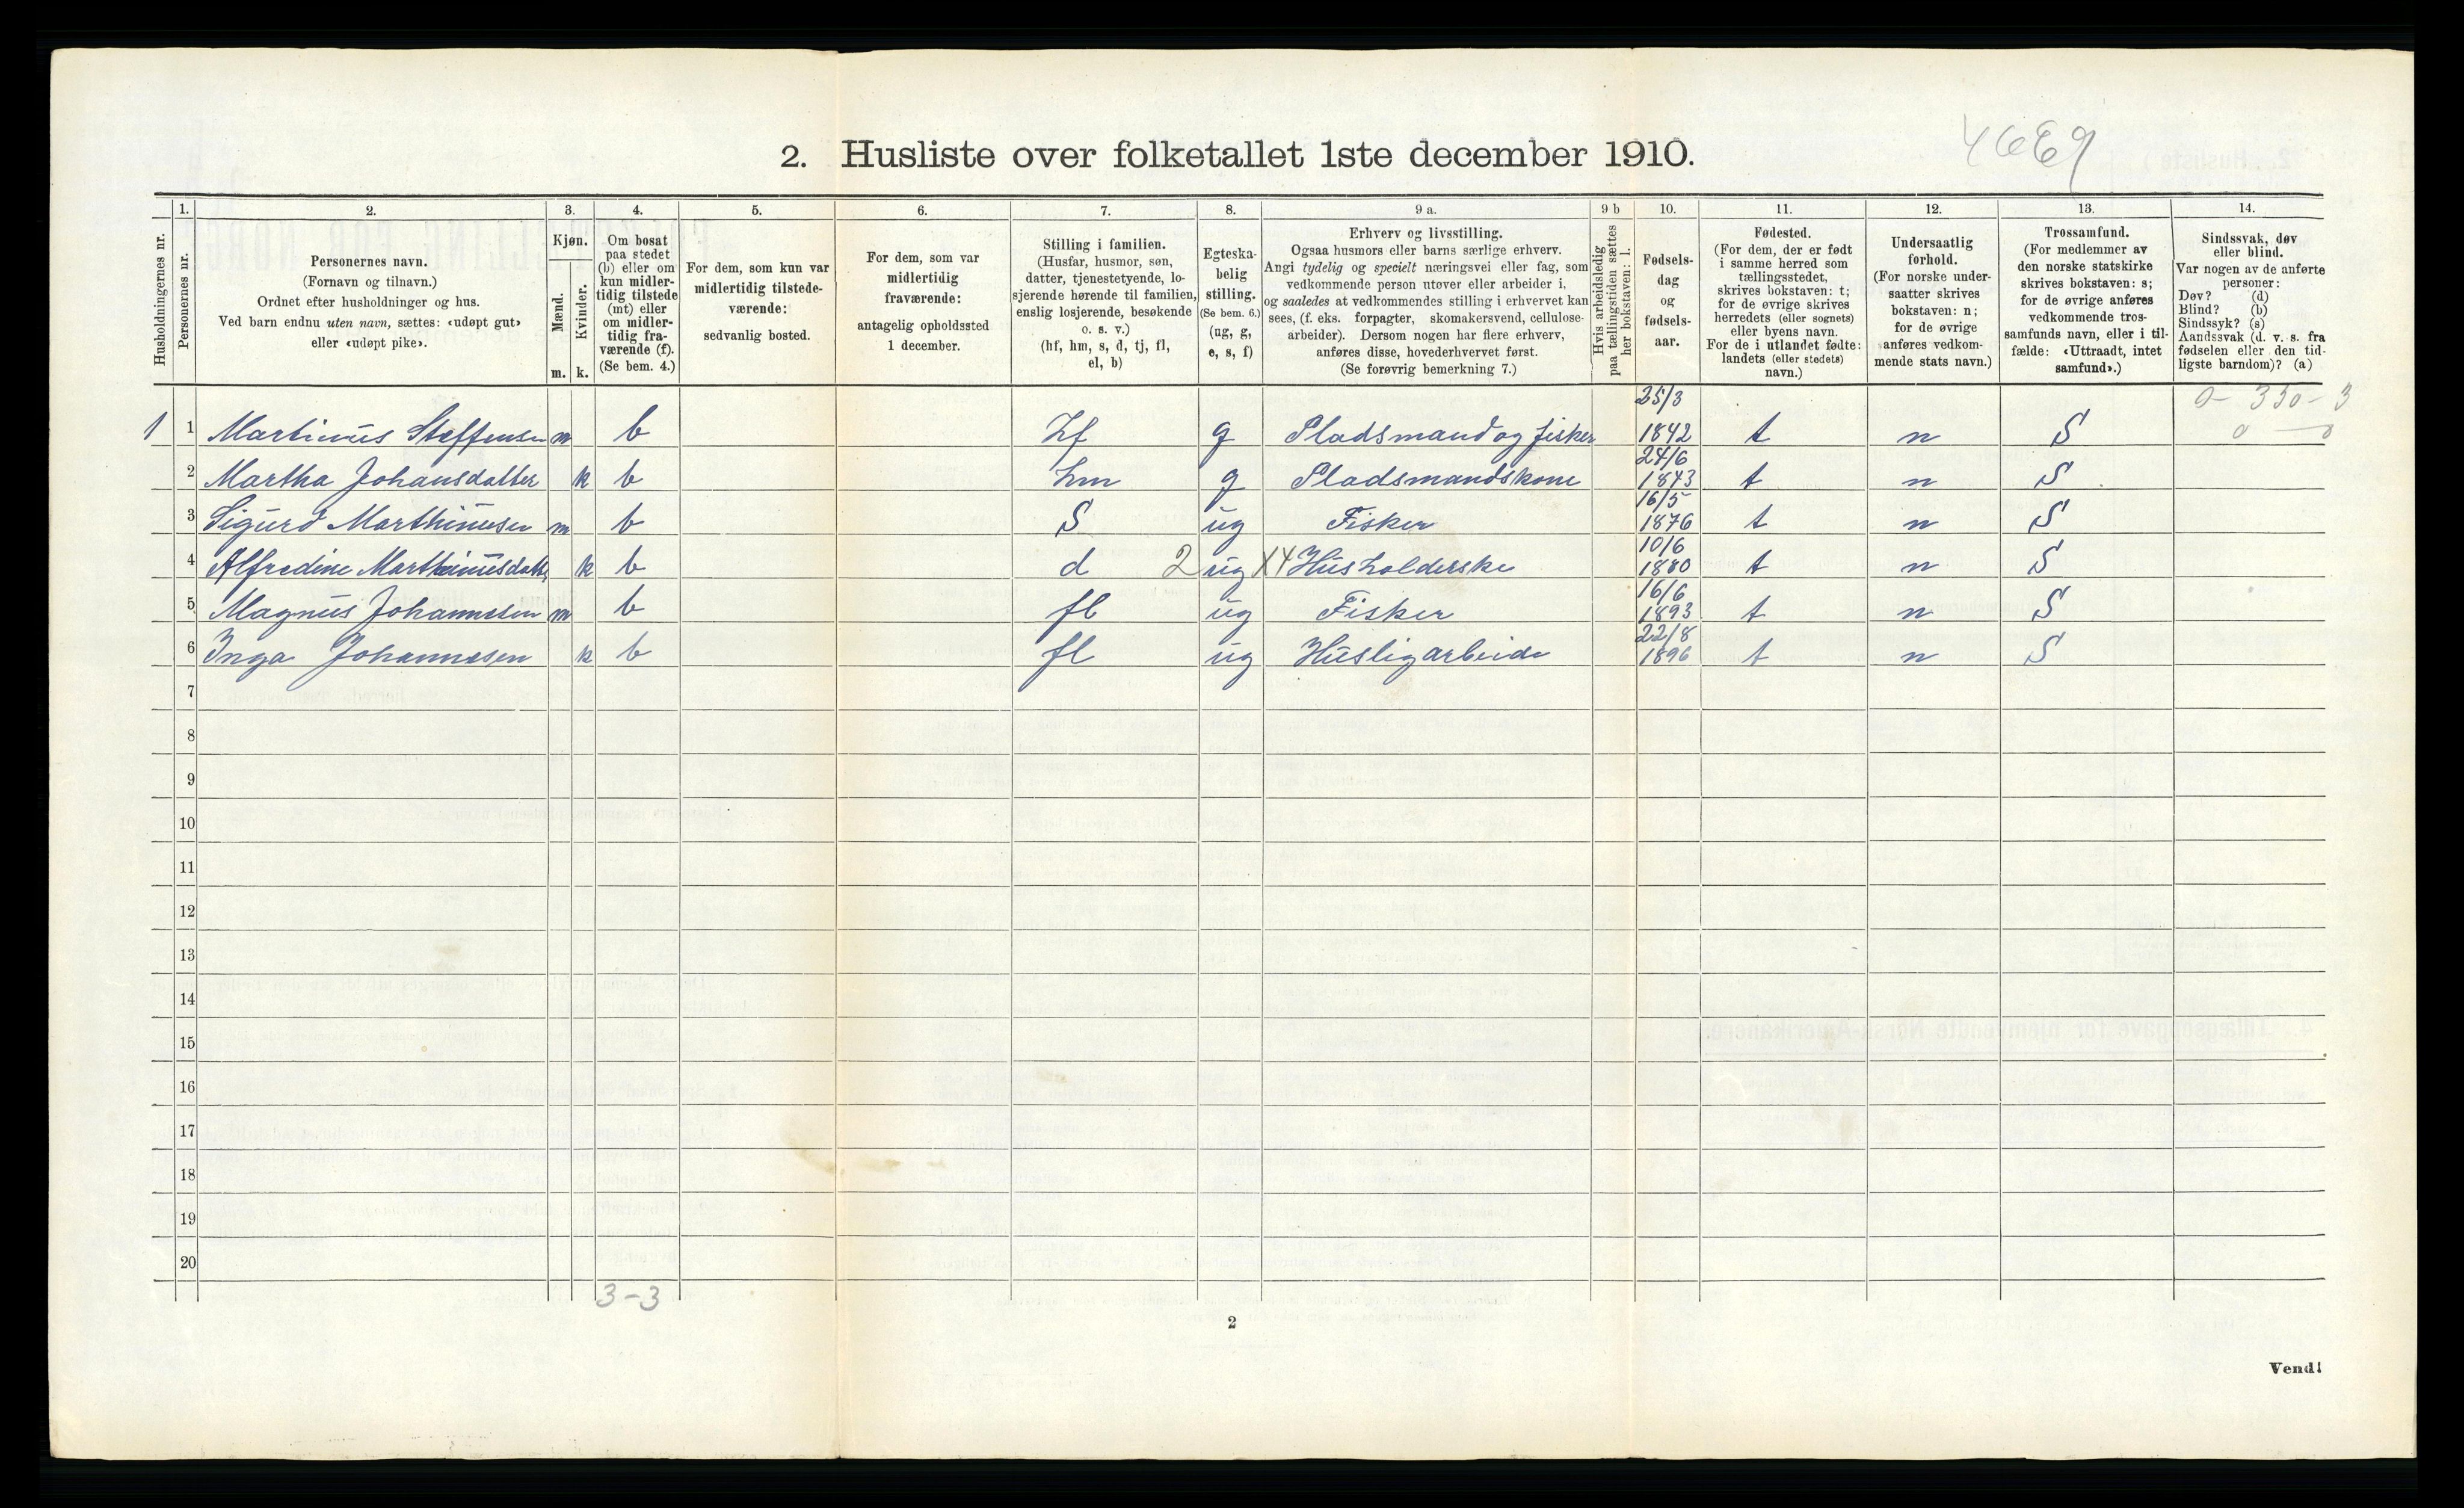 2. Husliste over folketallet 1ste december 1910.
Husholdningernes nr.
1.
Personernes nr.
2.
Personernes navn.
(Fornavn og tilnavn.)
Ordnet efter husholdninger og hus.
Ved barn endnu uten navn, sættes: «udøpt gut»
eller «udøpt pike».
3.
Kjøn.
Mænd.
Kvinder.
m. k.
4.
Om bosat
paa stedet
(b) eller om
kun midler-
tidig tilstede
(mt) eller
om midler-
tidig fra-
værende (f).
(Se bem. 4.)
5.
For dem, som kun var
midlertidig tilstede-
værende:
sedvanlig bosted.
6.
For dem, som var
midlertidig
fraværende:
antagelig opholdssted
1 december.
7.
Stilling i familien.
(Husfar, husmor, søn,
datter, tjenestetyende, lo-
sjerende hørende til familien,
enslig losjerende, besøkende
o. s. v.)
(hf, hm, s, d, tj, fl,
el, b)
8.
Egteska-
belig
stilling.
(Se bem. 6.)
(ug, g,
e, s, f)
9 a.
Erhverv og livsstilling.
Ogsaa husmors eller barns særlige erhverv.
Angi tydelig og specielt næringsvei eller fag, som
vedkommende person utøver eller arbeider i,
og saaledes at vedkommendes stilling i erhvervet kan
sees, (f. eks. forpagter, skomakersvend, cellulose-
arbeider). Dersom nogen har flere erhverv,
anføres disse, hovederhvervet først.
(Se forøvrig bemerkning 7.)
9 b
Hvis arbeidsledig
paa tællingstiden sættes
her bokstaven: l.
10.
Fødsels-
dag
og
fødsels-
aar.
11.
Fødested.
(For dem, der er født
i samme herred som
tællingsstedet,
skrives bokstaven: t;
for de øvrige skrives
herredets (eller sognets)
eller byens navn.
For de i utlandet fødte:
landets (eller stedets)
navn.)
12.
Undersaatlig
forhold.
(For norske under-
saatter skrives
bokstaven: n;
for de øvrige
anføres vedkom-
mende stats navn.)
13.
Trossamfund.
(For medlemmer av
den norske statskirke
skrives bokstaven: s;
for de øvrige anføres
vedkommende tros-
samfunds navn, eller i til-
fælde: «Uttraadt, intet
samfund».)
14.
Sindssvak, døv
eller blind.
Var nogen av de anførte
personer:
Døv? (d)
Blind? (b)
Sindssyk? (s)
Aandssvak (d. v. s. fra
fødselen eller den tid-
ligste barndom)? (a)
0 - 350 - 3
0 0
1 1 Martinus Steffensen m b hf g Pladsmand og fisker 25/3 1842 t n S
2 Martha Johansdatter k b hm g Pladsmandskone 24/6 1843 t n S
3 Sigurd Marthinusen m b S ug Fisker 16/5 1876 t n S
4 Alfredine Marthinusdatter k b d 2 ug X4 Husholderske 10/6 1880 t n S
5 Magnus Johannesen m b fl ug Fisker 16/6 1893 t n S
6 Inga Johannesen k b fl ug Husligarbeide 22/8 1896 t n S
7
8
9
10
11
12
13
14
15
16
17
18
19
20
3 - 3
2
Vend!